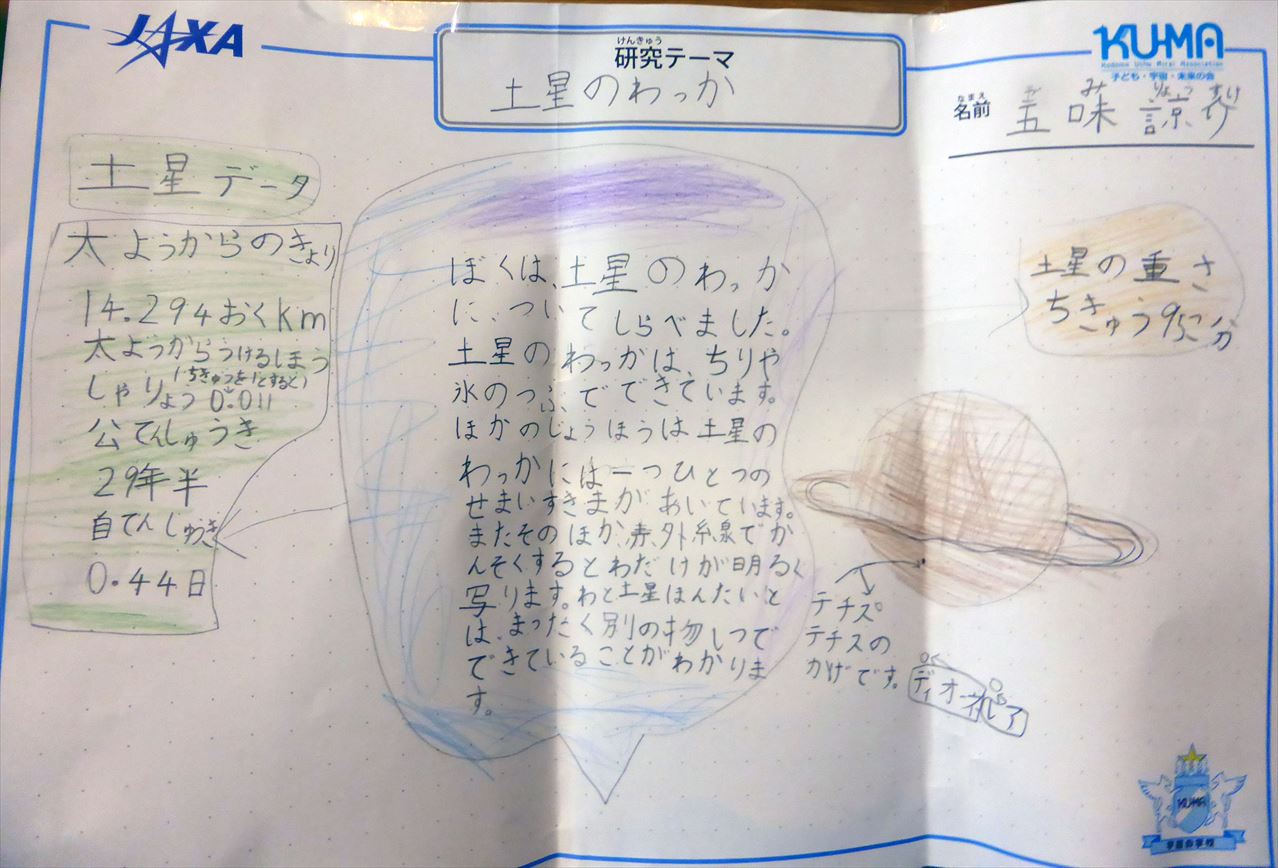 JAXA
けんきゅう
研究テーマ
土星のわっか
KU-MA
Kodomo Uchu Mirai Association
子ども・宇宙・未来の会
なまえ
名前
ご み りょう すけ
五味 諒介
土星データ
太ようからのきょり
14.294おくkm
太ようからうけるほう
しゃりょう 0.011
(ちきゅうを1とすると)
公てんしゅうき
29年半
自てんしゅうき
0.44日
ぼくは、土星のわっか
に、ついてしらべました。
土星のわっかは、ちりや
氷のつぶでできています。
ほかのじょうほうは土星の
わっかには一つひとつの
せまいすきまがあいています。
またそのほか、赤外糸泉でか
んそくするとわだけが明るく
写ります。わと土星ほんたいと
は、まったく別の物しつで
できていることがわかりま
す。
土星の重さ
ちきゅう95こ分
テチス
テチスの
かげです。
ディオネ
レア
KU-MA
宇宙の学校